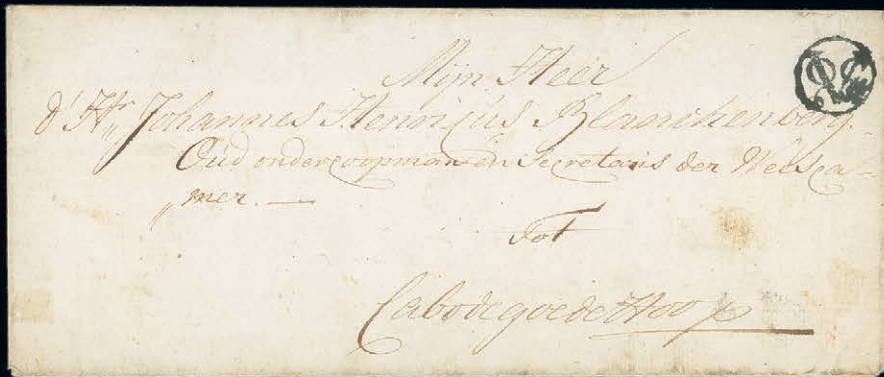 Mijn Heer
d' Hr. Johannes Henricus Blanckenberg.
Oud ondercoopman en Secretaris der Weesca=
„mer. —
Tot
Cabo de goede Hoop